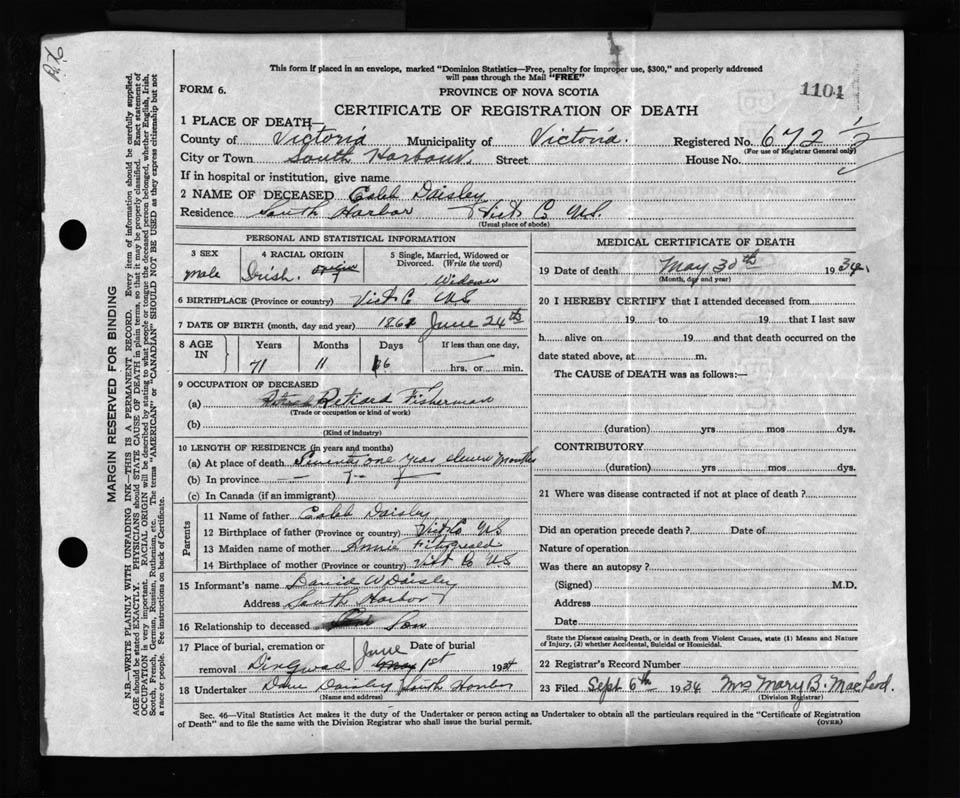 This form if placed in an envelope, marked "Dominion Statistics—Free, penalty for improper use, $300," and properly addressed
will pass through the Mail "FREE"
FORM 6.
PROVINCE OF NOVA SCOTIA
1104
CERTIFICATE OF REGISTRATION OF DEATH
1 PLACE OF DEATH—
County of Victoria Municipality of Victoria. Registered No. 672 1/2
(For use of Registrar General only)
City or Town South Harbour. Street House No.
If in hospital or institution, give name
2 NAME OF DECEASED Caleb Daisley
Residence South Harbor Vict Co NS.
(Usual place of abode)
PERSONAL AND STATISTICAL INFORMATION
3 SEX male
4 RACIAL ORIGIN Irish. origin
5 Single, Married, Widowed or
Divorced. (Write the word)
Widower
6 BIRTHPLACE (Province or country) Vict C NS
7 DATE OF BIRTH (month, day and year) 1862 June 24th
8 AGE IN
Years Months Days If less than one day,
71 11 6 hrs, or min.
9 OCCUPATION OF DECEASED
(a) Retiard Fisherman
(Trade or occupation or kind of work)
(b)
(Kind of industry)
10 LENGTH OF RESIDENCE (in years and months)
(a) At place of death Seventy one year eleven Months
(b) In province
(c) In Canada (if an immigrant)
Parents
11 Name of father Caleb Daisley
12 Birthplace of father (Province or country) Vict Co NS
13 Maiden name of mother Annie Fitzgerald
14 Birthplace of mother (Province or country) Vict Co NS
15 Informant's name David W Daisley
Address South Harbor
16 Relationship to deceased Son
17 Place of burial, cremation or removal Dingwall
Date of burial June 1st 1934
18 Undertaker Dave Daisley South Harbor
(Name and address)
MEDICAL CERTIFICATE OF DEATH
19 Date of death May 30th 1934.
(Month, day and year)
20 I HEREBY CERTIFY that I attended deceased from
19 to 19 that I last saw
h alive on 19 and that death occurred on the
date stated above, at m.
The CAUSE of DEATH was as follows:—
(duration) yrs mos dys.
CONTRIBUTORY
(duration) yrs mos dys.
21 Where was disease contracted if not at place of death?
Did an operation precede death? Date of
Nature of operation
Was there an autopsy?
(Signed) M.D.
Address
Date
State the Disease causing Death, or in death from Violent Causes, state (1) Means and Nature
of Injury, (2) whether Accidental, Suicidal or Homicidal.
22 Registrar's Record Number
23 Filed Sept 6th 1934 Mrs Mary B. MacLeod.
(Division Registrar)
Sec. 46—Vital Statistics Act makes it the duty of the Undertaker or person acting as Undertaker to obtain all the particulars required in the "Certificate of Registration
of Death" and to file the same with the Division Registrar who shall issue the burial permit.
(OVER)
MARGIN RESERVED FOR BINDING
N.B.—WRITE PLAINLY WITH UNFADING INK—THIS IS A PERMANENT RECORD. Every item of information should be carefully supplied.
AGE should be stated EXACTLY. PHYSICIANS should STATE CAUSE OF DEATH in plain terms, so that it may be properly classified. Exact statement of
OCCUPATION is very important. RACIAL ORIGIN will be described by stating to what people or tongue the deceased person belonged, whether English, Irish,
Scotch, French, German, Russian, Ruthenian, etc. The terms "AMERICAN" or "CANADIAN" SHOULD NOT BE USED as they express citizenship but not
a race or people. See instructions on back of Certificate.